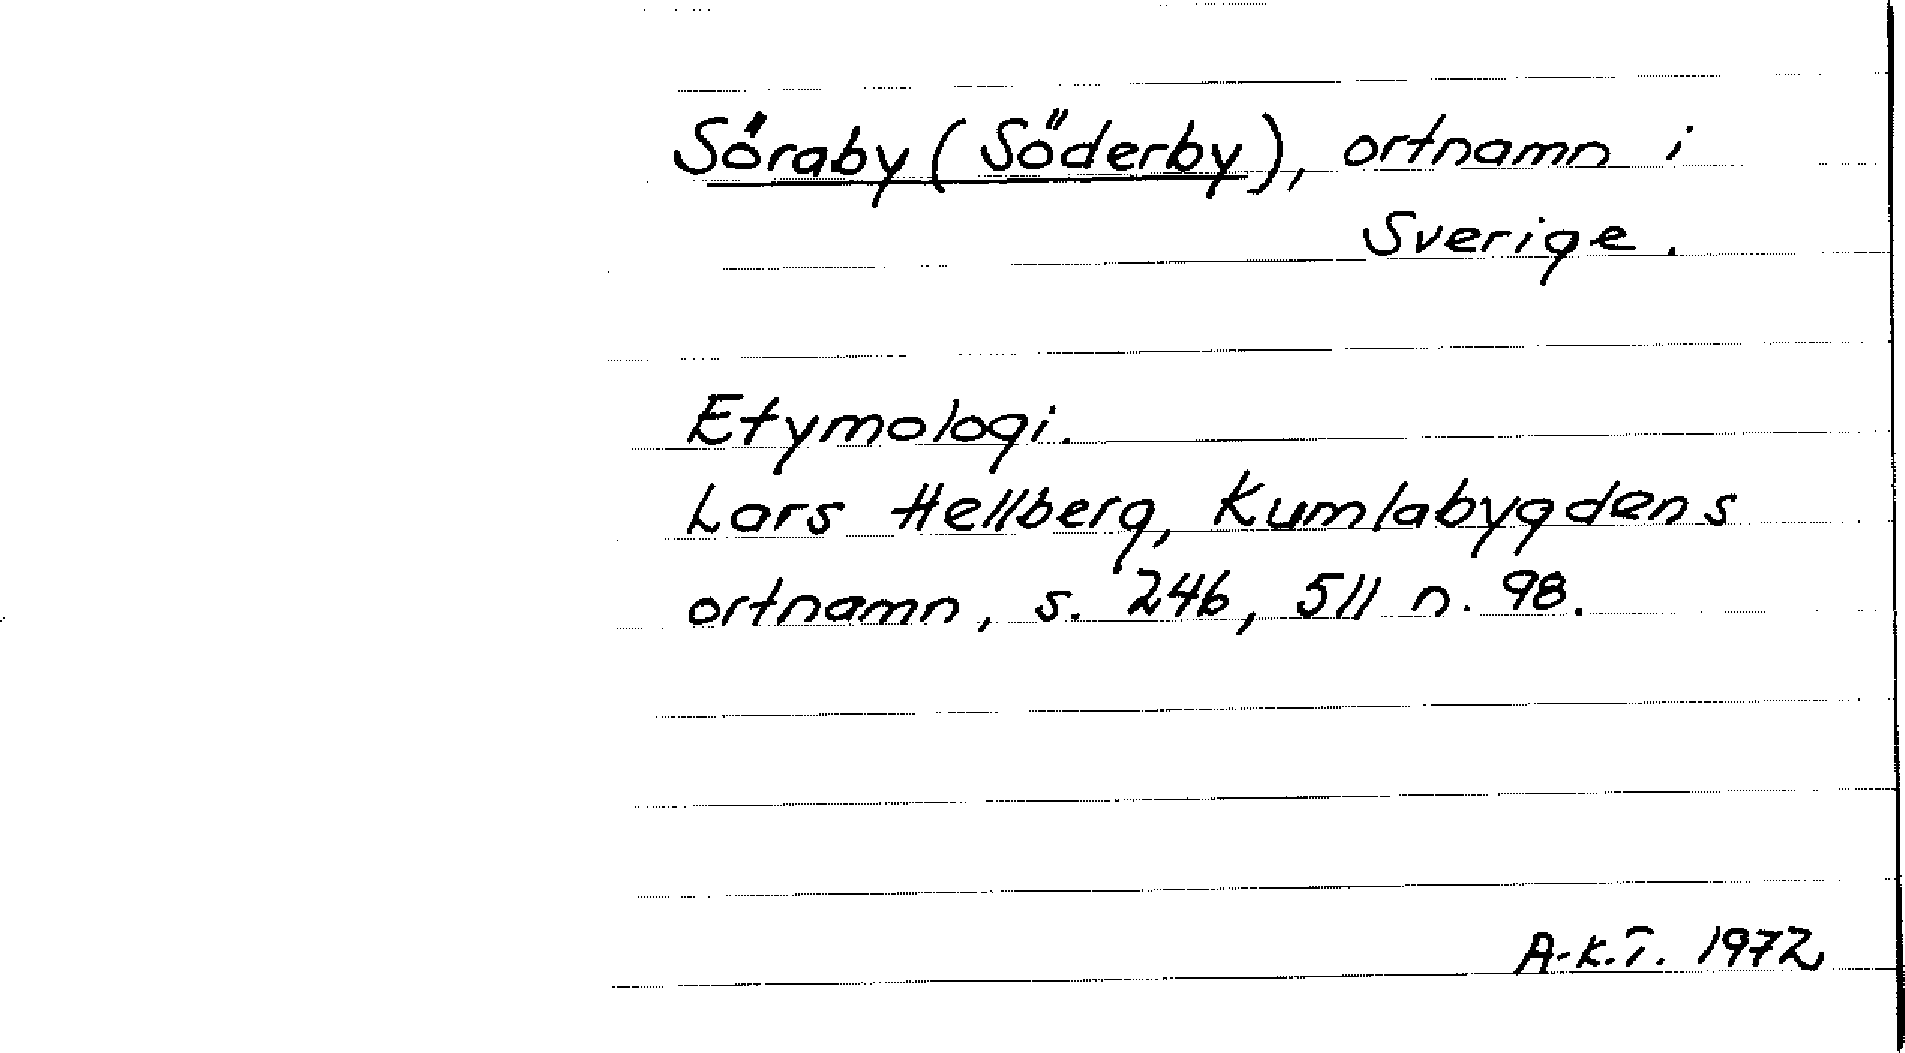 Söraby (Söderby), ortnamn i
Sverige.
Etymologi.
Lars Hellberg, Kumlabygdens
ortnamn, s. 246, 511 n. 98.
A-K.T. 1972